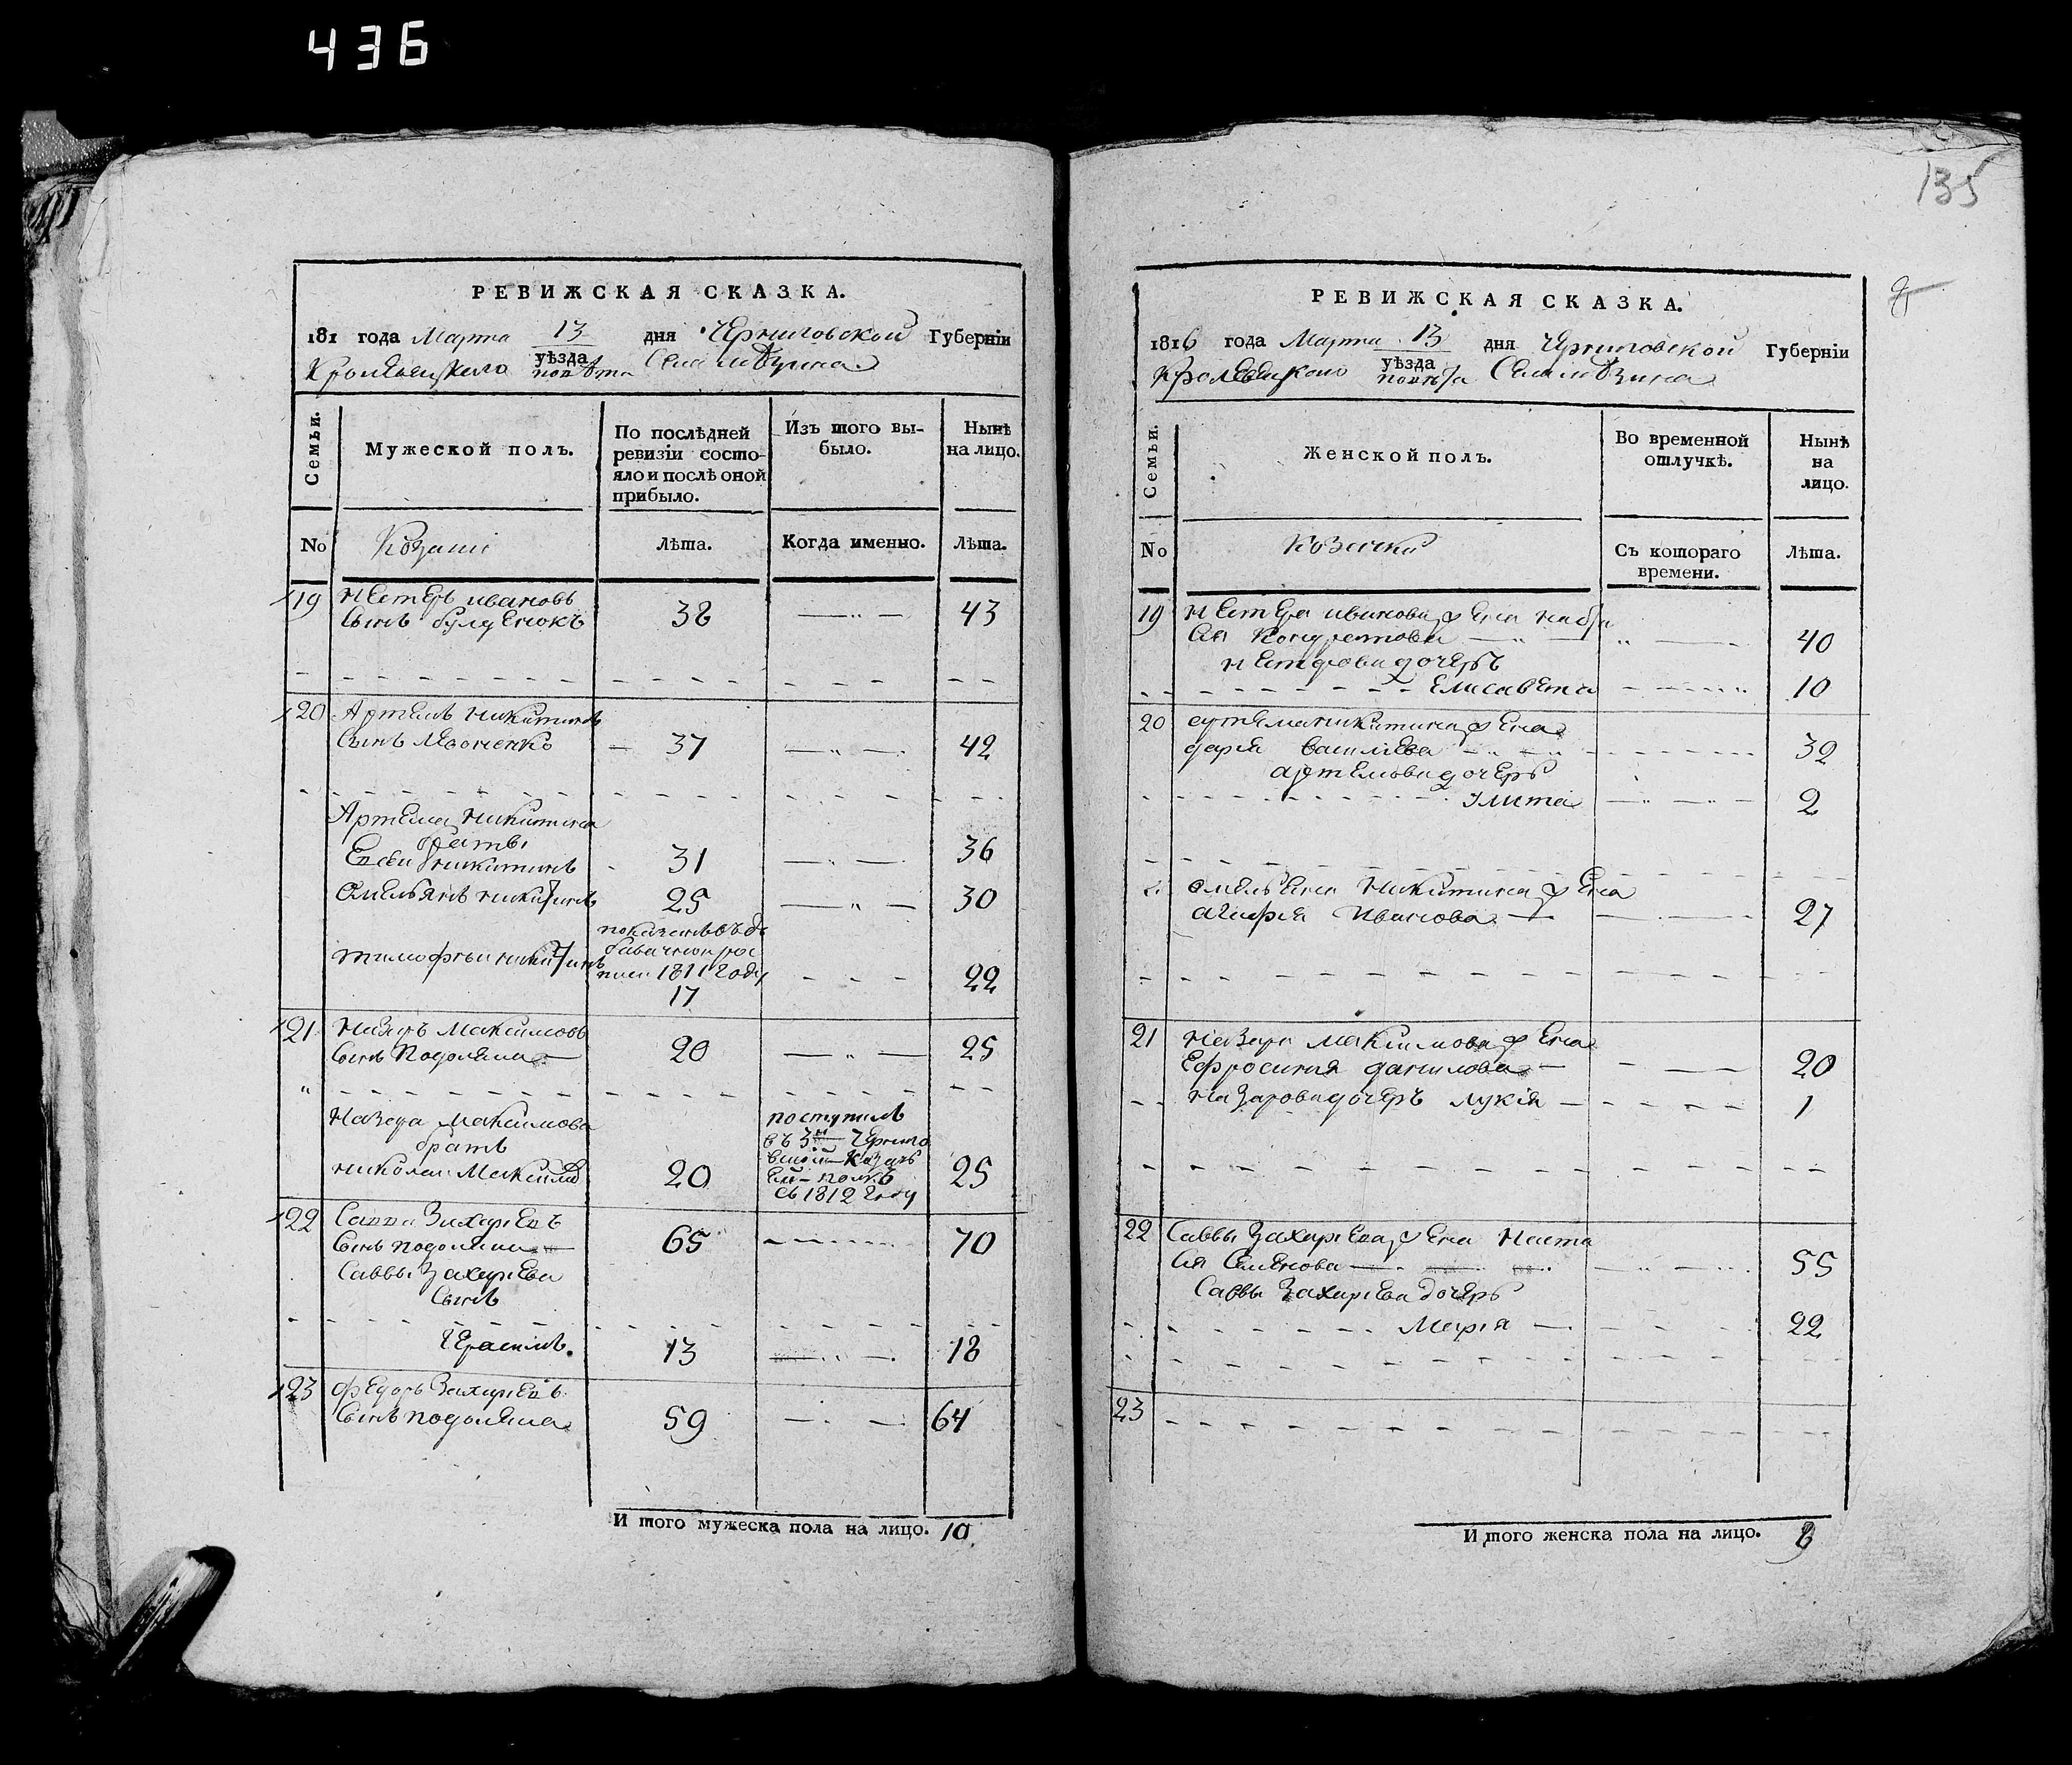 436
135
8
РЕВИЖСКАЯ СКАЗКА.
181 года Марта 13 дня Черниговской Губерніи
Кролевецкаго уѣзда повѣта Села
Семьи. Мужеской полъ. По послѣдней ревизіи состояло и послѣ оной прибыло. Изъ того выбыло. Нынѣ на лицо.
No Козаки Лѣта. Когда именно. Лѣта.
19 Нестеръ Ивановъ
сынъ 38 43
20 Артемъ Никитинъ
сынъ 37 42
Артема Никитина
братьи
Никитинъ 31 36
Омельянъ Никитинъ 25 30
показанъ въ до
бавочной рос
писи 1811 году
Тимофѣи Никитинъ 22
17
21 Назаръ Максимовъ
сынъ Подоляка 20 25
Назара Максимова
братъ
Николаи Максимовъ 20 25
поступилъ
въ 3й Черниго
вскій Козач
ей полкъ
въ 1812 году
22 Савва Захаріевъ
сынъ Подоляка 65 70
Саввы Захаріева
сынъ
Герасимъ 13 18
23 Федоръ Захаріевъ
сынъ Подоляка 59 64
И того мужеска пола на лицо. 10
РЕВИЖСКАЯ СКАЗКА.
1816 года Марта 13 дня Черниговской Губерніи
Кролевецкого уѣзда повѣта Села
Семьи. Женской полъ. Во временной отлучкѣ. Нынѣ на лицо.
No Козачки Съ котораго времени. Лѣта.
19 Нестера Иванова жена Наста
сія Кондратова 40
Нестерова дочерь
Елисавета 10
20 Артема Никитина жена
Дарія Василева 32
Артемова дочерь
Улита 2
Омельяна Никитина жена
Агафія Иванова 27
21 Назара Максимова жена
Ефросинія Данилова 20
Назарова дочеръ Лукія 1
22 Саввы Захаріева жена Наста
сія Семенова 55
Саввы Захаріева дочерь
Марія 22
23
И того женска пола на лицо. 9